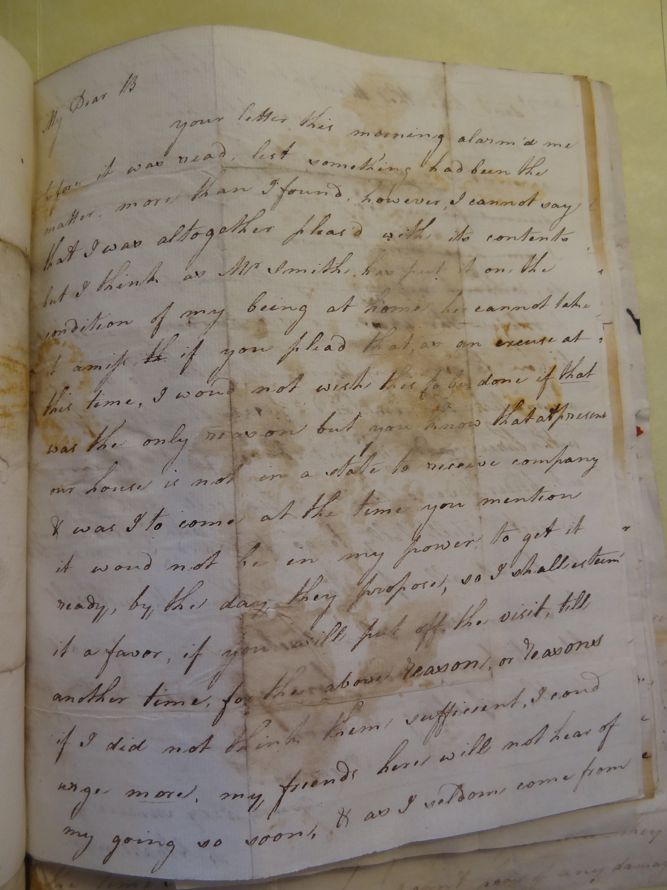 My Dear B
your letter this morning alarm'd me
before it was read, lest something had been the
matter, more than I found, however, I cannot say
that I was altogather pleas'd with its contents
but I think as Mr Smith, has put it on the
condition of my being at home he cannot take
it amiss, if you plead that, as an excuse at
this time, I woud not wish this to be done if that
was the only reason but you know that at present
our house is not in a state to receive company
& was I to come at the time you mention
it woud not be in my power to get it
ready, by the day they propose, so I shall esteem
it a favor, if you will put off the visit, till
another time, for the above reason, or reasons
if I did not think them sufficient, I coud
urge more, my friends here will not hear of
my going so soon, & as I seldom come from